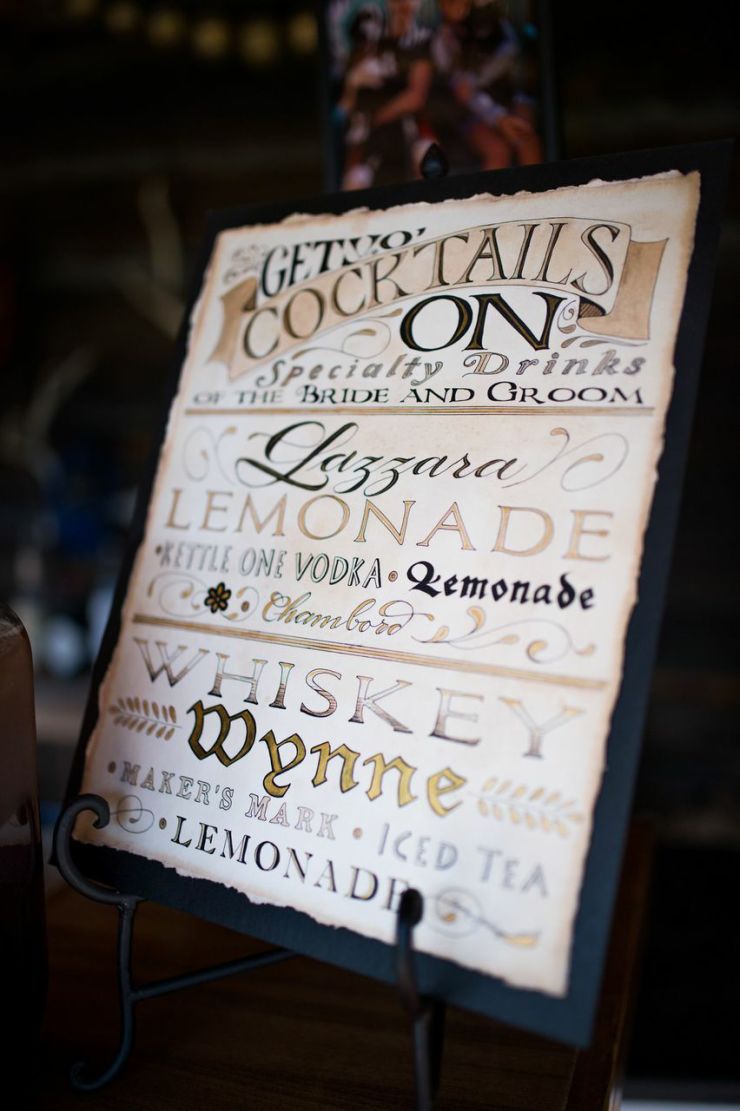 GET YO'
COCKTAILS
ON
Specialty Drinks
OF THE BRIDE AND GROOM
Lazzara
LEMONADE
•KETTLE ONE VODKA • Lemonade
Chambord
WHISKEY
Wynne
•MAKER'S MARK • ICED TEA
•LEMONADE